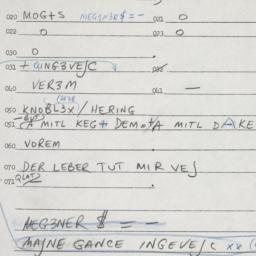 020 MOG+S MEG3N3R$=- 021 0
022 0 023 0
030 0
031 + GING3VEJC 032
040 VER3M 041 —
050 KNOBL3X / HERING
051 CA MITL KEG+ DEMO+A MITL DAKE
060 VOREM
070 DER LEBER TUT MIR VEJ
071 0
MEG3NER $ = -
MAJNE GANCE INGEVEJC XX